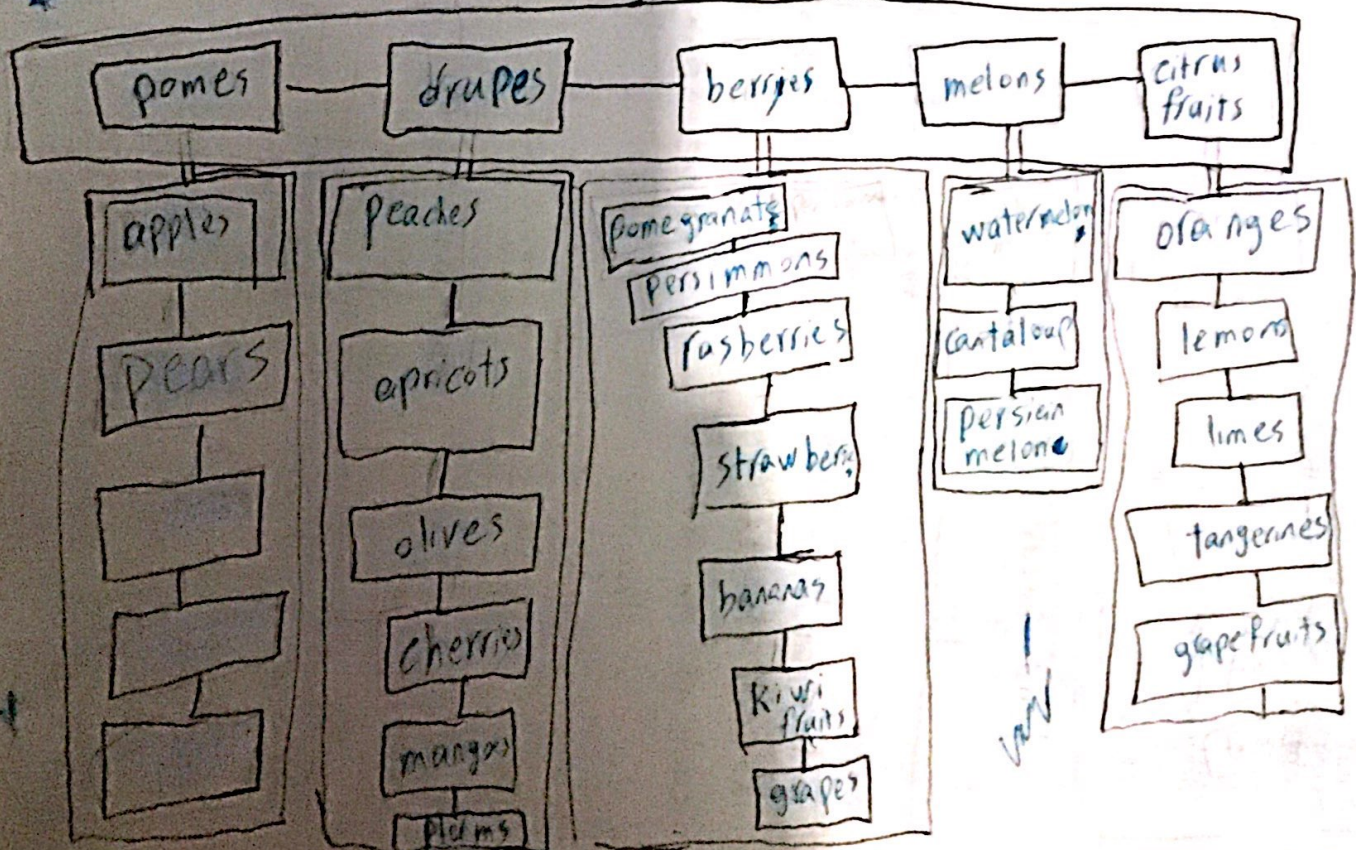 pomes
drupes
berries
melons
citrus
fruits
apples
pears
peaches
apricots
olives
cherries
mangos
plums
pomegranate
persimmons
rasberries
strawber
bananas
kiwi
fruits
grapes
watermelon
cantaloup
persian
melon
oranges
lemons
limes
tangerines
grapefruits